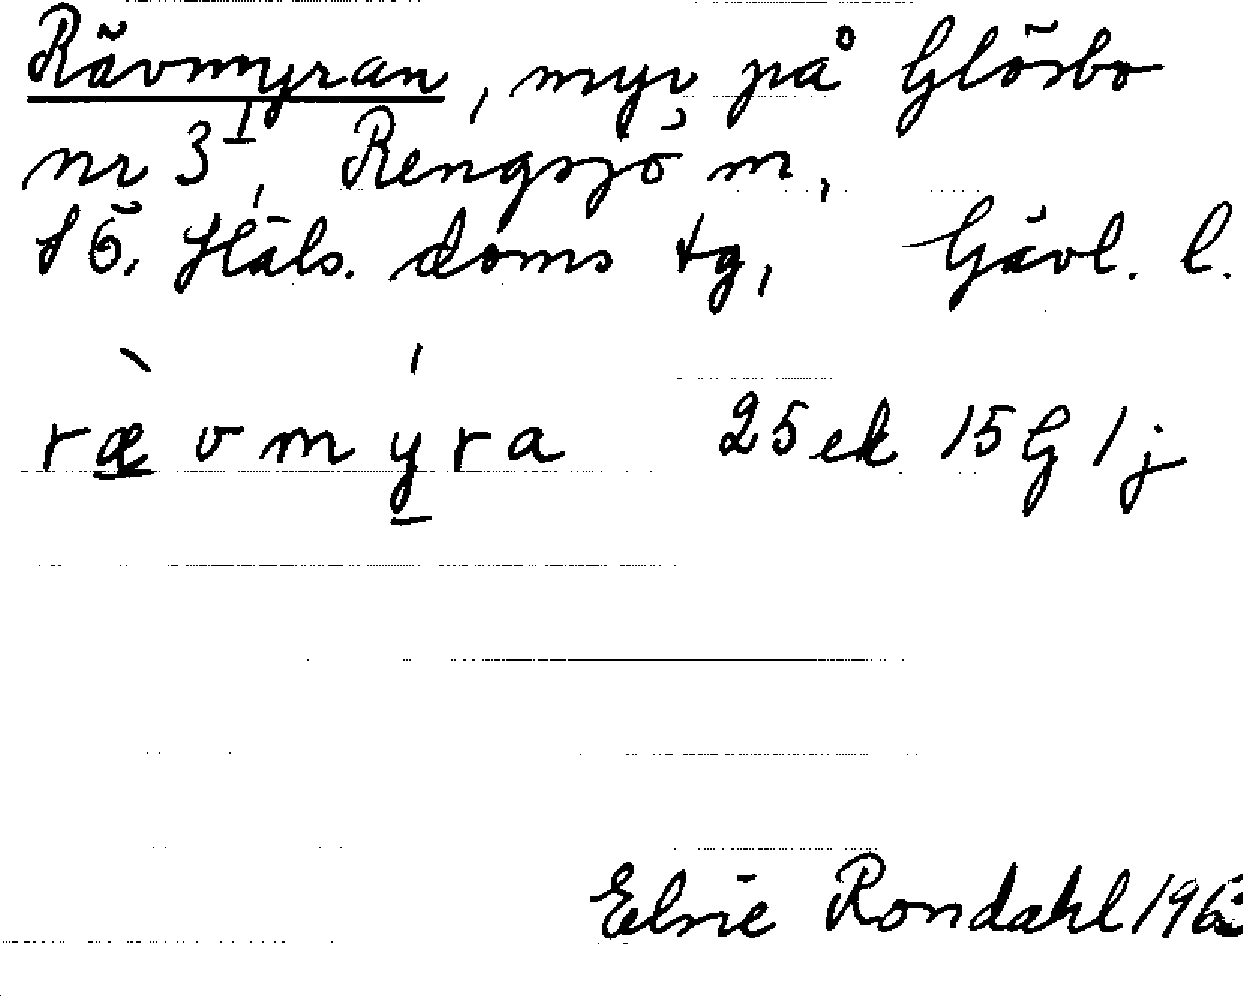 Rävmyran, myr på Glösbo
nr 3 I, Rengsjö m,
SÖ. Häls. doms tg, Gävl. l.
rævmýra 25 ek 15 G 1 j
Elsie Rondahl 1963